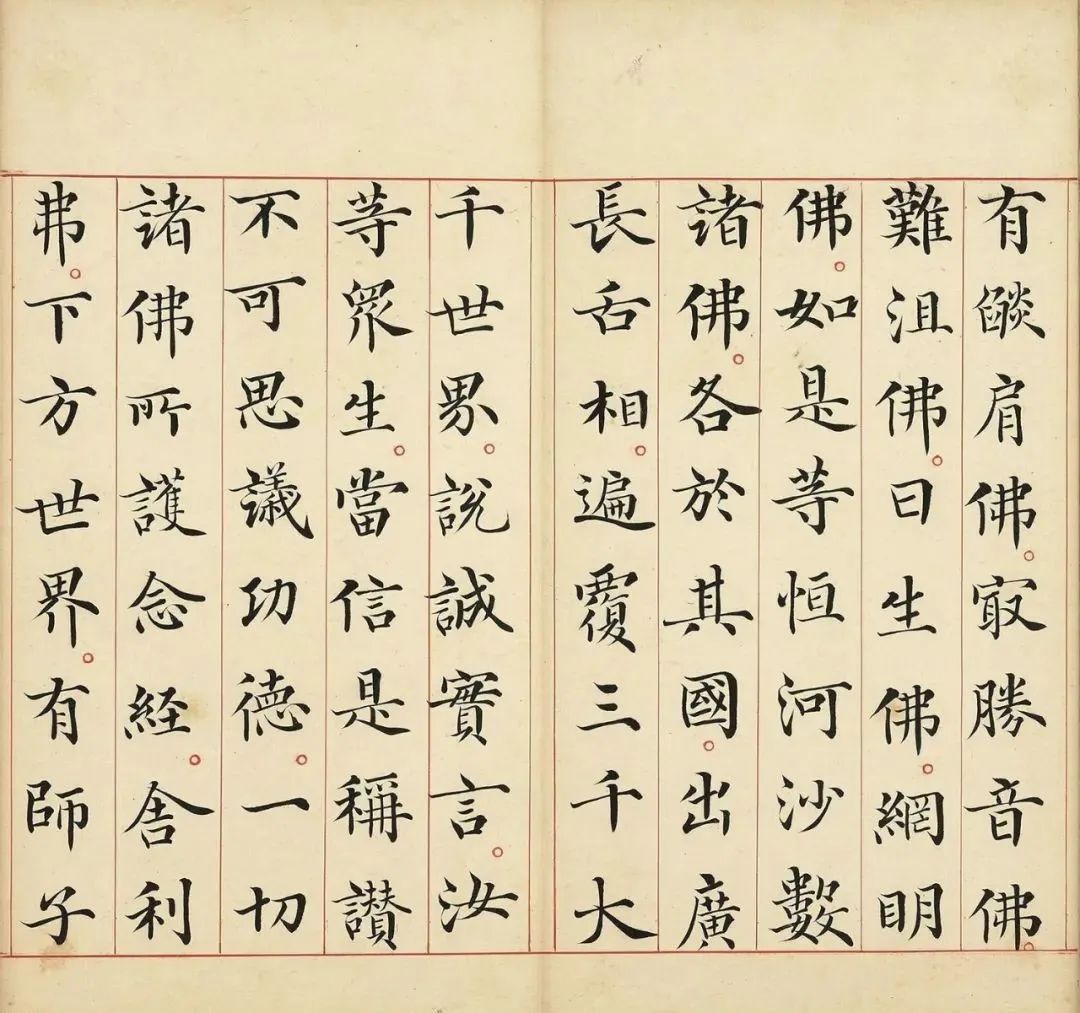 有燄肩佛。冣勝音佛。
難沮佛。日生佛。網明
佛。如是等恒河沙數
諸佛。各於其國。出廣
長舌相。遍覆三千大
千世界。說誠實言。汝
等衆生。當信是稱讚
不可思議功德。一切
諸佛所護念經。舍利
弗。下方世界。有師子